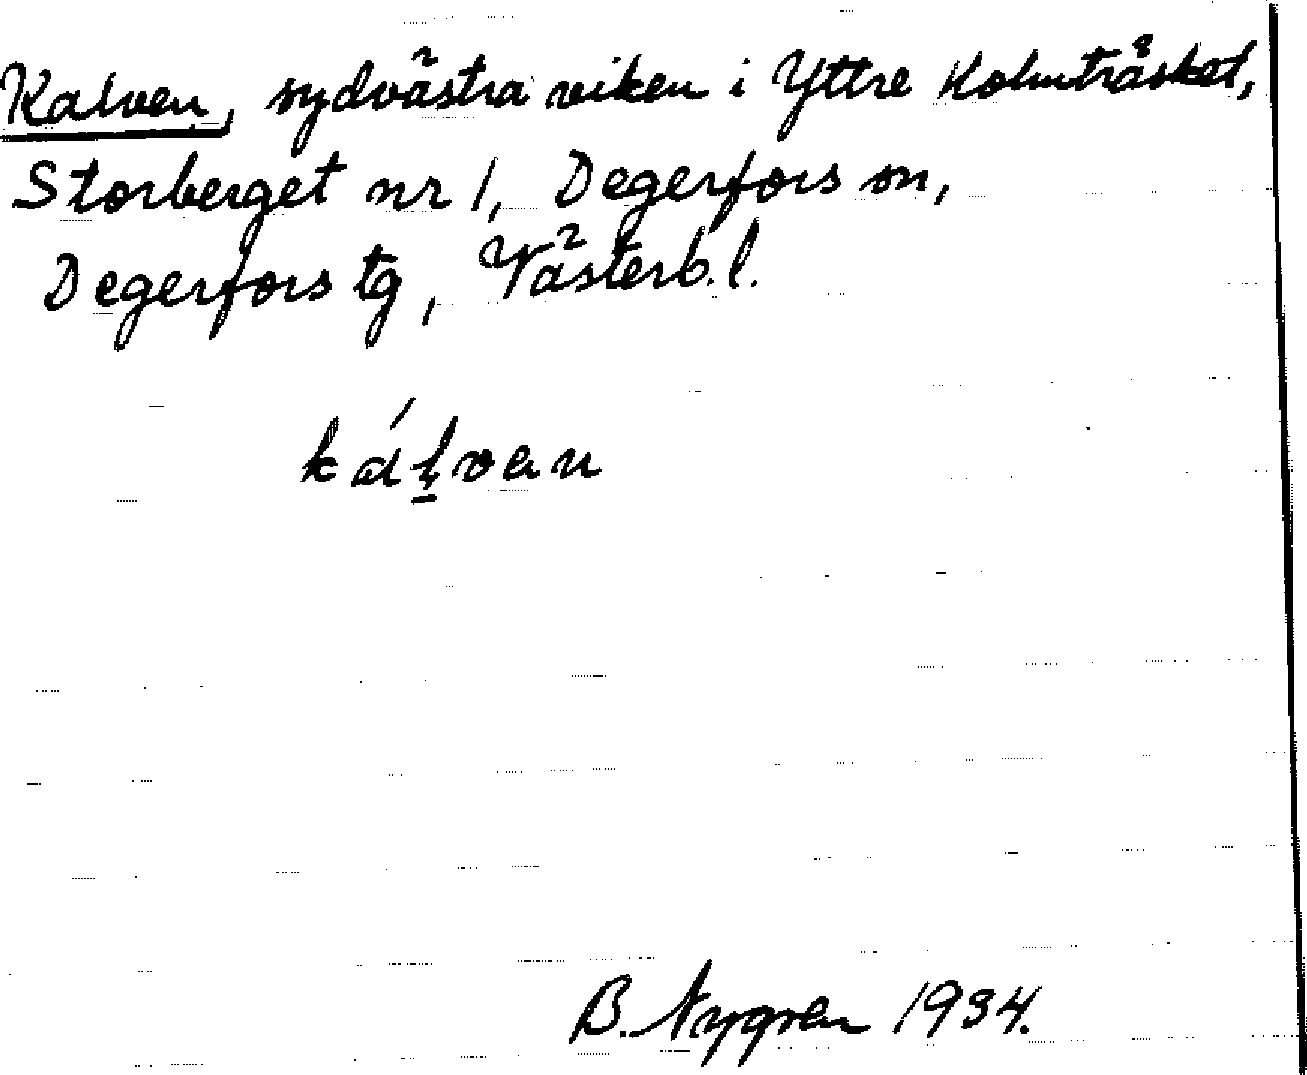 Kalven, sydvästra viken i Yttre Kolmträsket,
Storberget nr 1, Degerfors sn,
Degerfors tg, Västerb. l.
kálvan
B. Nygren 1934.